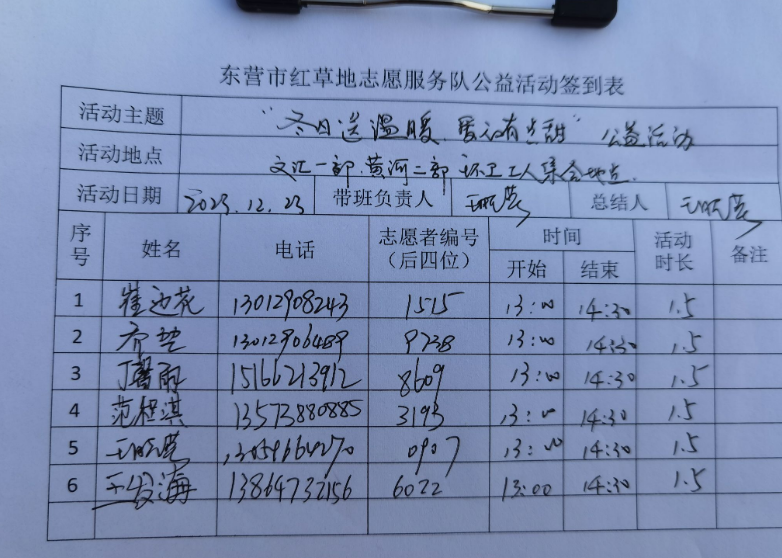 东营市红草地志愿服务队公益活动签到表
活动主题 "冬日送温暖 "公益活动
活动地点 文汇一部、黄河二部环卫工人集合地点.
活动日期 2023.12.23 带班负责人 王晓芸 总结人 王晓芸
序号 姓名 电话 志愿者编号（后四位） 时间 活动时长 备注
开始 结束
1 崔迎花 13012908243 1515 13:00 14:30 1.5
2 齐楚 13012906489 9738 13:00 14:30 1.5
3 丁馨雨 15166213912 8609 13:00 14:30 1.5
4 范程淇 13573880885 3193 13:00 14:30 1.5
5 王晓芸 13059664270 0907 13:00 14:30 1.5
6 王发海 13864732156 6022 13:00 14:30 1.5